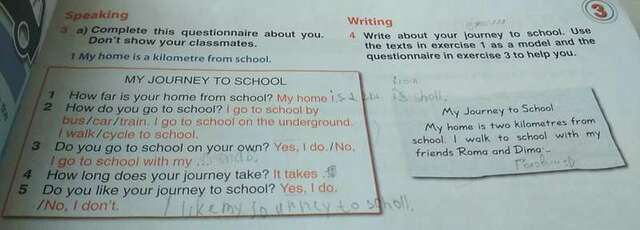 Speaking
3 a) Complete this questionnaire about you.
Don't show your classmates.
1 My home is a kilometre from school.
MY JOURNEY TO SCHOOL
1 How far is your home from school? My home is
2 How do you go to school? I go to school by
bus/car/train. I go to school on the underground.
I walk/cycle to school.
3 Do you go to school on your own? Yes, I do./No,
I go to school with my
4 How long does your journey take? It takes
5 Do you like your journey to school? Yes, I do.
/No, I don't. I like my journey to scholl.
Writing
3
4 Write about your journey to school. Use
the texts in exercise 1 as a model and the
questionnaire in exercise 3 to help you.
My Journey to School
My home is two kilometres from
school. I walk to school with my
friends Roma and Dima...